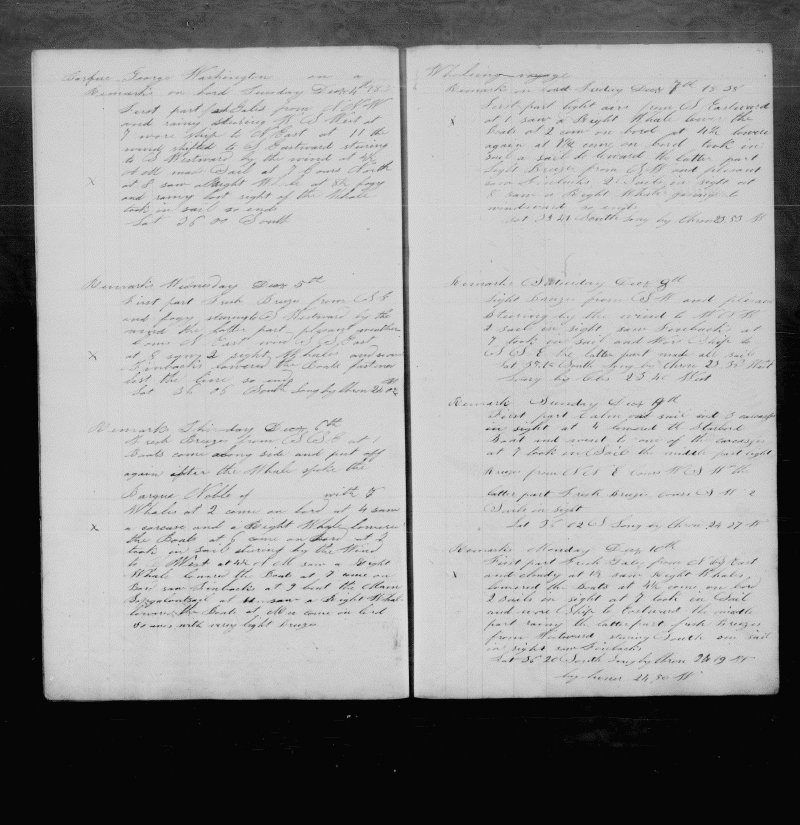 George Washington on a
Remarks on bord Tuesday Dec 4th
First part Gales from N N W
and rainy stering W S West at
7 wore ship to East at 11 the
wind shifted to Eastward stering
to S Westward by the wind at
made Sail at 7 Cours North
x at 8 saw a Right Whale at 8½ fogy
and rainy lost sight of the Whale
took in sail so ends
Lat 36 00 South
Remarks Wensday Dec 5th
First part Fresh Breeze from S E
and fogy stering S Westward by the
wind the latter part plesant weather
Cours S East wind S S East
x at 8 saw 2 right Whales and saw
Finbacks lowered the Boats
so ends
Lat 36 05 South Long by Chron 24 02 W
Remarks Thirsday Dec 6th
Fresh Breeze from S S E at 1
Boats come along side and put off
again after the Whale spoke the
Barque Noble of with
Whales at 2 come on bord at 4 saw
x a carcase and a Right Whale lowered
the Boats at come on bord at 7
took in sail stering by the Wind
to West at A M saw a Right
Whale lowered the Boats at 7 came on
Bord saw Finbacks at 9 bent the Main
at 11 saw a Right Whale
lowered the Boats at Mer come on bord
so ends with very light breeze
Whaleing voyage
Remarks on bord Friday Dec 7th 1838
First part light airs from S Eastward
x at 1 saw a Right Whale lower the
Boats at 2 come on bord at 4½ lowered
again at 7½ come on bord took in
Sail a sail to leward the latter part
light Breeze from S W and plesant
saw Finbacks 2 Sails in sight at
8 saw a Right Whale going to
windward so ends
Lat 35 41 South Long by Chron 23 53 W
Remarks Saturday Dec 8th
Light breeze from S W and plesant
Stering by the wind to W N W
2 sail in sight saw Finbacks at
7 took in sail and Wore Ship to
S S E the latter part made all sail
Lat South Long by Chron 23 35 West
Long by Obs 23 40 West
Remark Sunday Dec 9th
First part Calm one sail and 3 carcases
in sight at 4 lowered the Starbord
Boat and went to one of the carcases
at 7 took in Sail the middle part light
breeze from N N E cours W S W the
latter part Fresh Breeze cours S W 2
Sails in sight
Lat 36 02 S Long by Chron 24 27 W
Remarks Monday Dec 10th
First part Fresh Gales from N by East
x and cloudy at 1½ saw Right Whales
lowered the Boats at 4½ come on bord
2 sails in sight at 7 took in Sail
and wore Ship to Eastward the middle
part rainy the latter part fresh breezes
from Westward stering South one sail
in sight saw Finbacks
Lat 36 20 South Long by Chron 24 19 W
by Luner 24 50 W